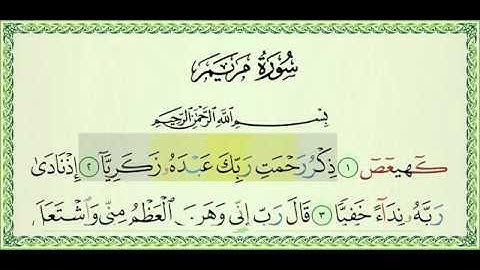 سُورَةُ مَرْيَمَ
بِسْمِ اللَّهِ الرَّحْمَٰنِ الرَّحِيمِ
كٓهيعٓصٓ ١ ذِكْرُ رَحْمَتِ رَبِّكَ عَبْدَهُۥ زَكَرِيَّآ ٢ إِذْ نَادَىٰ
رَبَّهُۥ نِدَآءً خَفِيًّا ٣ قَالَ رَبِّ إِنِّى وَهَنَ الْعَظْمُ مِنِّى وَاشْتَعَلَ